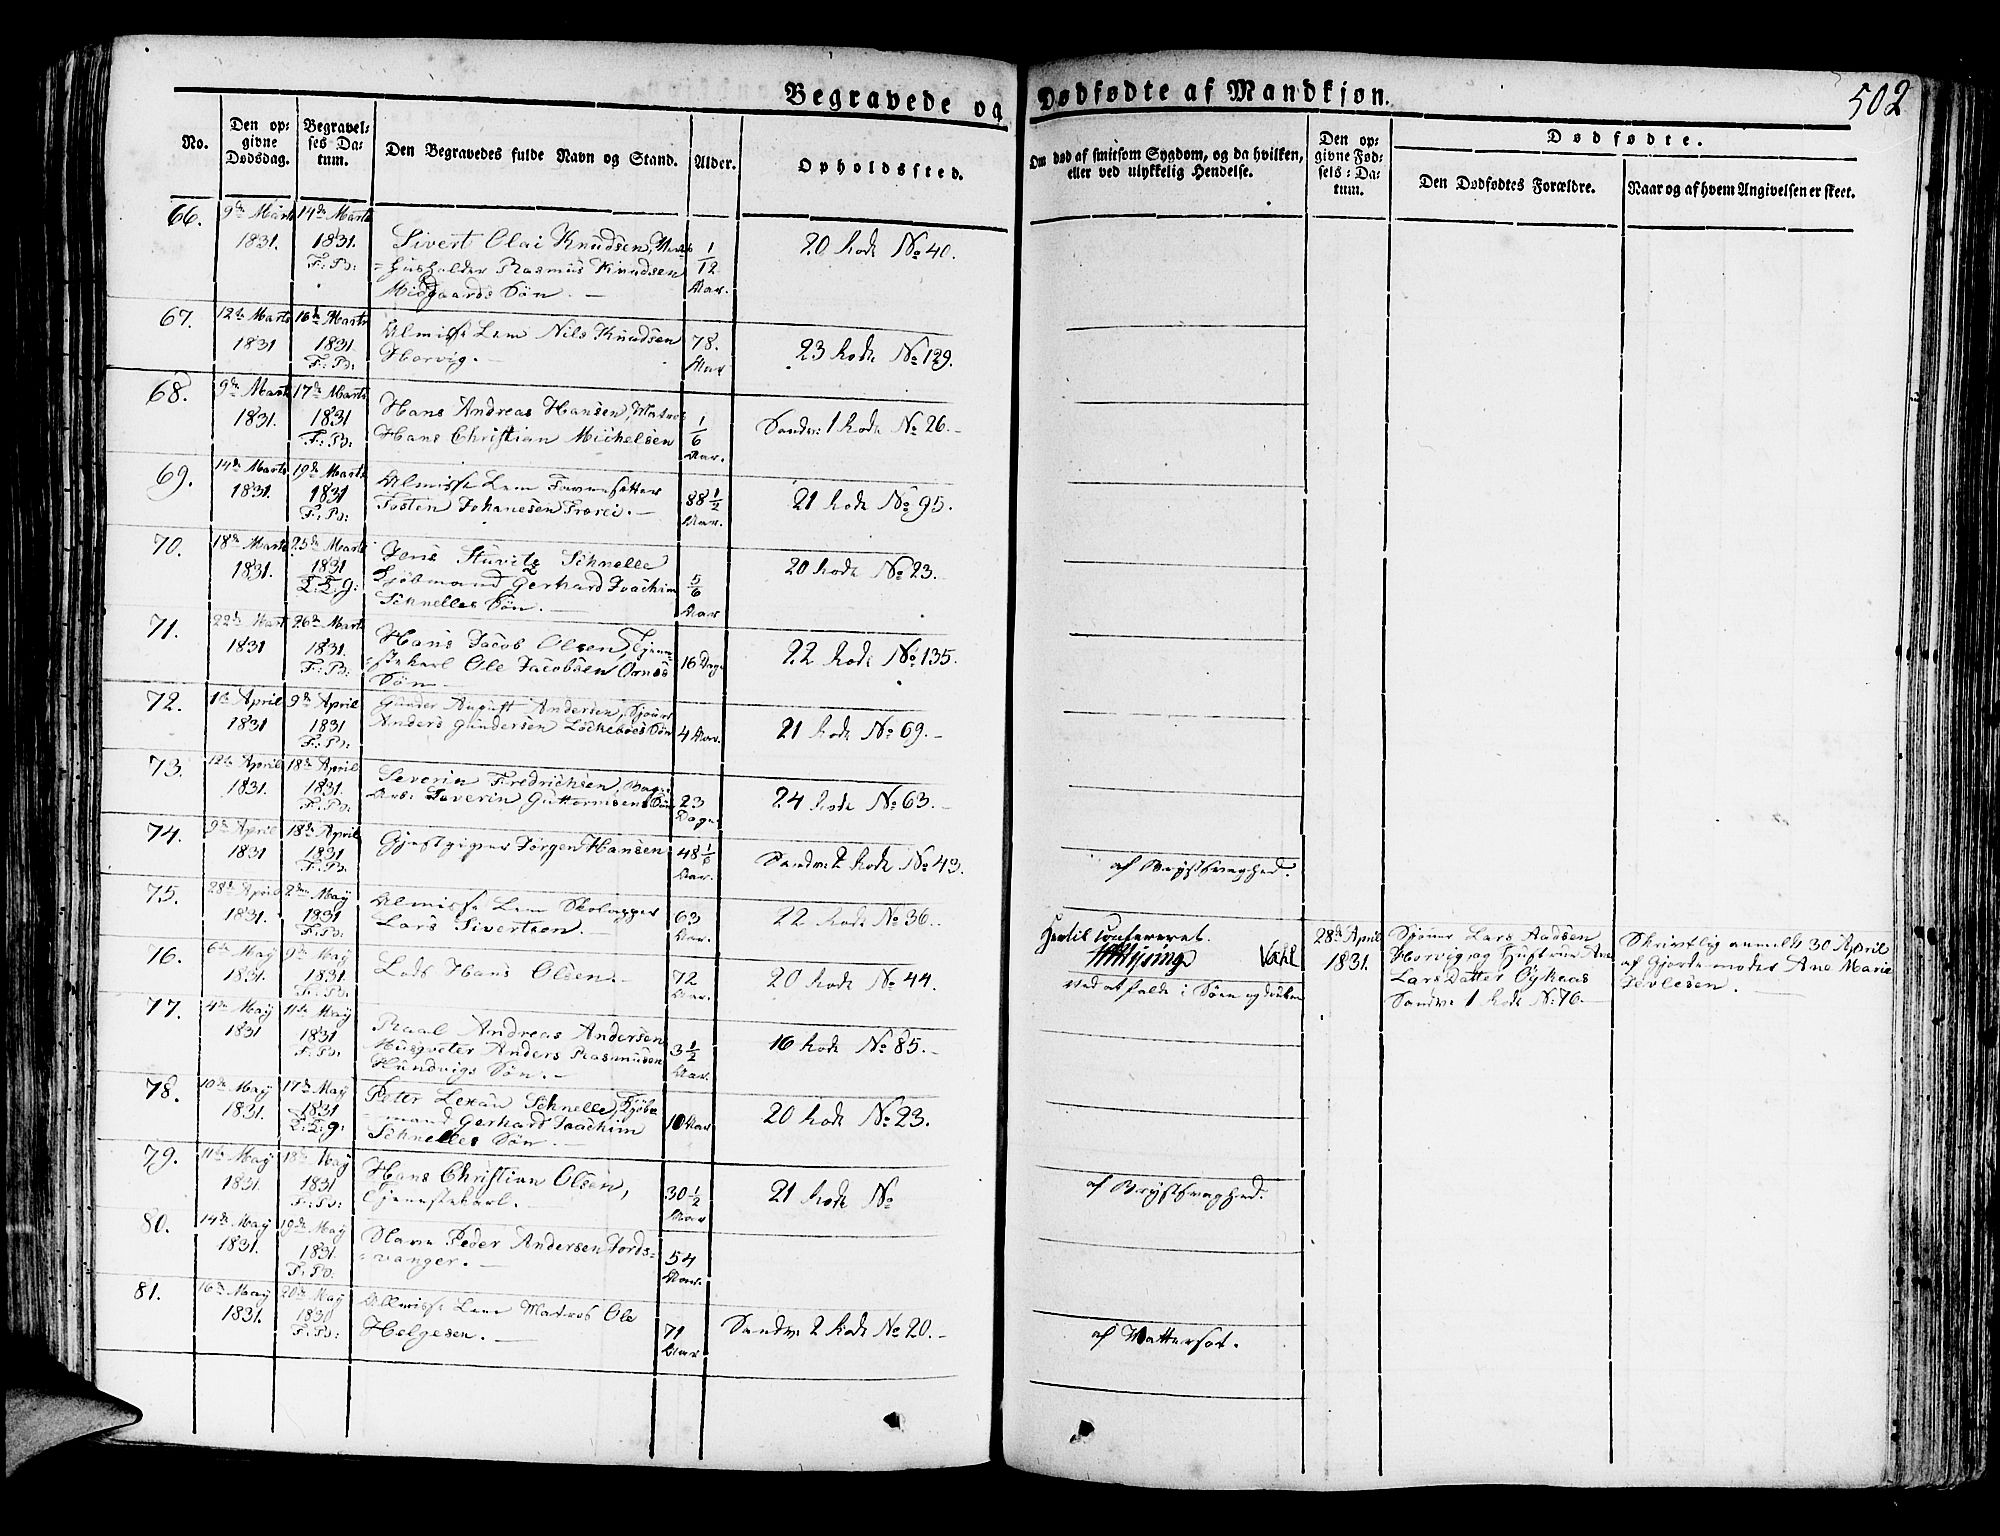 Begravede og Dødfødte af Mandkjøn.
502
No.
Den op-
givne
Dødsdag.
Begravel-
ses Da-
tum.
Den Begravedes fulde Navn og Stand.
Alder.
Opholdssted.
Om død af smitsom Sygdom, og da hvilken,
eller ved ulykkelig Hendelse.
Den op-
givne Fød-
sels-Da-
tum.
Dødfødte.
Den Dødfødtes Forældre.
Naar og af hvem Angivelsen er skeet.
66. 9de Marts 14de Marts
1831. 1831. Sivert Olai Knudsen, 1/12 20 Rode No 40.
F: B: Huusholder Rasmus Knudsen Aar.
Midgaards Søn.
67. 12te Marts 16de Marts Almisse Lem Nils Knudsen 78.
1831 1831. Horvig. Aar 23 Rode No 129.
F: B:
68. 9de Marts 17de Marts Hans Andreas Hansen, Matros 1/6 Sandv: 1 Rode No 26.
1831. 1831 Hans Christian Michelsen Aar.
F: B:
69. 14de Marts 19de Marts Almisse Lem 88 1/2 21 Rode No 95.
1831. 1831 Tosten Johanesen Aar.
F: B:
70. 18de Marts 25de Marts Jens Stuvitz Schnelle 5/6 20 Rode No 23.
1831. 1831 Kjøbmand Gerhard Joachim Aar
Schnelles Søn.
71. 22de Marts 26de Marts Hans Jacob Olsen, Tjene-
1831 1831. stekarl Ole Jacobsen Ornes 16 Dage 22 Rode No 135.
F: B: Søn
72. 1te April 9de April Gunder August Andersen,
1831 1831 Anders Gundersen Lockeboes Søn 4 Aar. 21 Rode No 69.
F: B:
73. 12te April 18de April Severin Fredrichsen,
1831. 1831. Severin Guttormsens Søn 23 24 Rode No 63.
F: B: Dage
74. 9de April 18de April Gjestgiver Jørgen Hansen 48 1/6 Sandv: 2 Rode No 43. af Brystsvaghed.
1831 1831 Aar.
F: B:
75. 28de April 2den May Almisse Lem 63 22 Rode No 36.
1831. 1831 Lars Sivertsen. Aar.
F: B:
Hertil confereret.
28de April
1831.
Lars Aadsen
Horvig og Hustrue Ane
Lars Datter
Sandv: 1 Rode No 76.
Skrivtlig anmeldt 30 April
af Gjordemoder Ane Marie
76. 6te May 9de May Lods Hans Olsen. 72 20 Rode No 44. Ved at falde i Søen og
1831. 1831. Aar.
F: B:
77. 4de May 11te May Raal Andreas Andersen
1831 1831 Anders Rasmusen 3 1/2 16 Rode No 85.
F: B: Hundvigs Søn. Aar.
78. 10de May 17de May Peter Schnelle, Kjøb-
1831. 1831 mand Gerhard Joachim 10 Aar 20 Rode No 23.
Schnelles Søn.
79. 11te May 18de May Hans Christian Olsen, 30 1/2 21 Rode No af Brystsvaghed.
1831. 1831 Tjenestekarl. Aar
F: B:
80. 14de May 19de May Peder Andersen 54
1831. 1831. Aar.
F: B:
81. 16de May 20de May Almisse Lem Matros Ole 71 Sandv: 2 Rode No 20. af Vattersot.
1831. 1831 Helgesen. Aar.
F: B: